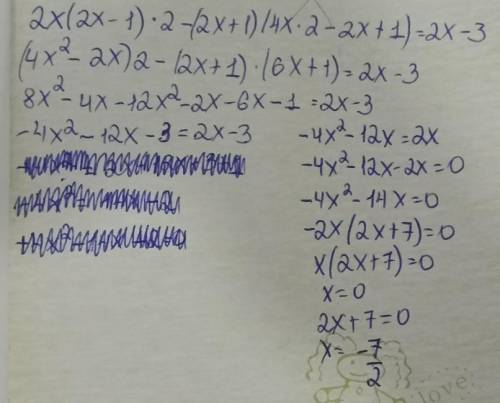 2x(2x-1)·2-(2x+1)(4x·2-2x+1)=2x-3
(4x²-2x)2-(2x+1)·(6x+1)=2x-3
8x²-4x-12x²-2x-6x-1=2x-3
-4x²-12x-3=2x-3
-4x²-12x=2x
-4x²-12x-2x=0
-4x²-14x=0
-2x(2x+7)=0
x(2x+7)=0
x=0
2x+7=0
x=-7/2
love